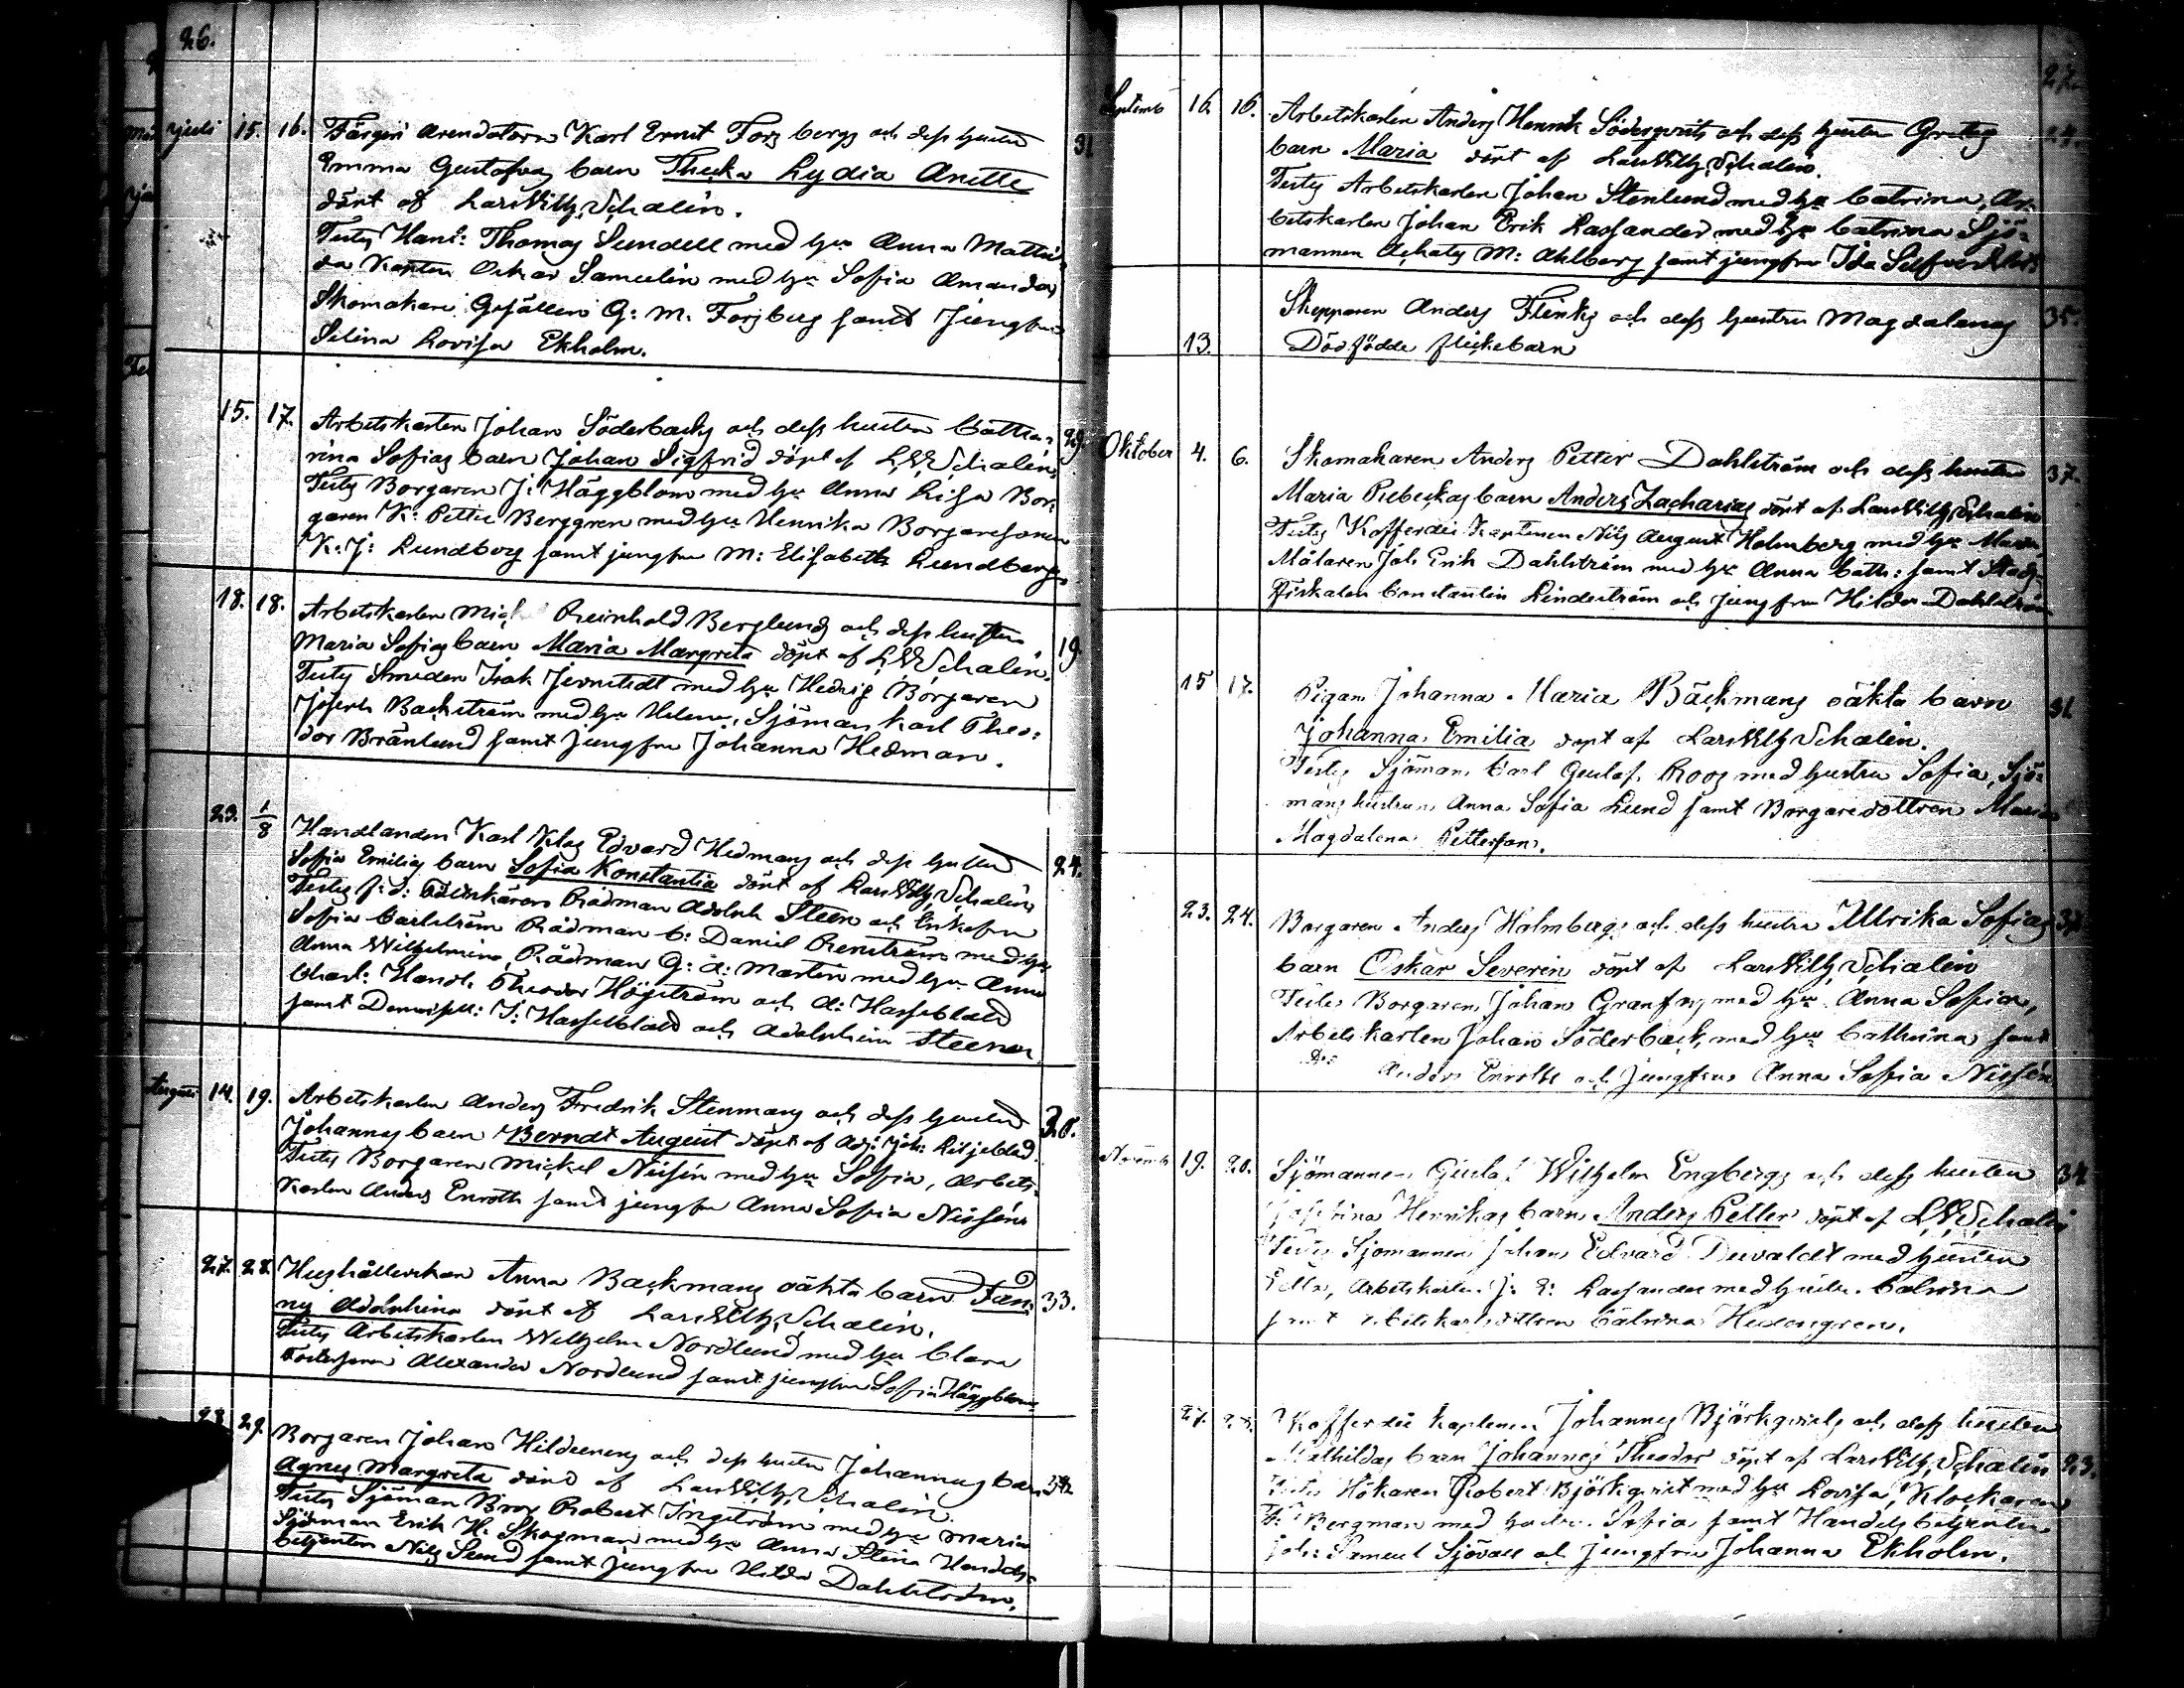 26.
Juli 15. 16. Färgeri Arendatorn Karl Ernst Forsbergs och dess hustru 31
Emma Gustafvas barn Thecka Lydia Anette
döpt af Lars Wilh. Schalin.
Testes Handl: Thomas Sundell med hu Anna Mathil-
da Kapten Oskar Samuelin med hu Sofia Amanda
Skomakare Gesällen G: M. Forsberg samt Jungfru
Selina Lovisa Ekholm.
15. 17. Arbetskarlen Johan Söderbacks och dess hustru Catha- 29.
rina Sofias barn Johan Sigfrid döpt af L. W. Schalin
Testes Borgaren J: Häggblom med hu Anna Lisa Bor-
garen K: Petter Berggren med hu Henrika Borgaresonen
K: J: Lundberg samt jungfru M: Elisabeth Lundberg
18. 18. Arbetskarlen Mich Reinhold Berglunds och dess hustru 19.
Maria Sofias barn Maria Margreta döpt af L. W. Schalin.
Testes Smeden Isak Jernstedt med hu Hedvig Borgaren
Joseph Backström med hu Helena, Sjöman Karl Theo-
dor Bränlund samt Jungfru Johanna Hedman.
23. 1/8 Handlanden Karl Klas Edvard Hedmans och dess hustru 24.
Sofia Emilias barn Sofia Konstantia döpt af Lars Wilh. Schalin
Testes Rådman Adolph Steen och Enkefru
Sofia Carlström Rådman C: Daniel Renström med hu
Anna Wilhelmina, Rådman G: A: Martin med hu Anna
Charl: Handl. Theodor Högström och A: Hasselblatt
samt Demoisell: I: Hasselblatt och Adolphina Steen
Augusti 14. 19. Arbetskarlen Anders Fredrik Stenmans och dess hustru 30.
Johannas barn Berndt August döpt af Adj: Joh: Liljeblad.
Testes Borgaren Mickel Nissén med hu Sofia, Arbets-
karlen Anders Enroth samt jungfru Anna Sofia Nissén
27. 28. Hushållerskan Anna Backmans oäkta barn Fan- 33.
ny Adolphina döpt af Lars Wilh. Schalin.
Testes Arbetskarlen Wilhelm Nordlund med hu Clara
Fostersonen Alexander Nordlund samt jungfru Sofia Häggblom
28. 29. Borgaren Johan Hildeens och dess hustru Johannas barn
Agnes Margreta döpt af Lars Wilh. Schalin.
Testes Sjöman Robert Ingström med hu Maria
Sjöman Erik H. Skogman med hu Anna Stina Handels-
betjenten Nils Lund samt jungfru Hilda Dahlström.
27.
Septemb 16. 16. Arbetskarlen Anders Henrik Söderqvists och dess hustru Gretas
barn Maria döpt af Lars Wilh. Schalin.
Testes Arbetskarlen Johan Stenlund med hu Catrina, Ar-
betskarlen Johan Erik Lassander med hu Catrina Sjö-
mannen Achates M: Ahlberg samt jungfru Ida
Skepparen Anders Flinks och dess hustru Magdalenas 35.
13. Dödfödda flickebarn
Oktober 4. 6. Skomakaren Anders Petter Dahlström och dess hustru 37.
Maria Rebeckas barn Anders Zacharias döpt af Lars Wilh. Schalin
Testes Kofferdi Kaptenen Nils August Holmberg med hu Maria
Målaren Joh Erik Dahlström med hu Anna Cath: samt Stads-
Fiskalen Constantin Lindström och jungfru Hilda Dahlström
15 17. Pigan Johanna Maria Bäckmans oäkta barn
Johanna Emilia döpt af Lars Wilh. Schalin.
Testes Sjöman Carl Gustaf Roos med hustru Sofia, Sjö-
mans hustrun Anna Sofia Lund samt Borgaredottren Maria
Magdalena Pettersson.
23. 24. Borgaren Anders Holmbergs och dess hustru Ulrika Sofias
barn Oskar Severin döpt af Lars Wilh. Schalin
Testes Borgaren Johan Granfors med hu Anna Sofia,
Arbetskarlen Johan Söderback, med hu Cathrina samt
Do Anders Enroth och Jungfru Anna Sofia Nissén
Novemb 19. 20. Sjömannen Gustaf Wilhelm Engbergs och dess hustru 34
Josefina Henrikas barn Anders Petter döpt af L. W. Schalin
Testes Sjömannen Johan Edvard Dewaldt med hustru
Arbetskarlen J: E: Lassander med hustru Catrina
samt Arbetskarlsdottren Catrina Hedengren.
27. 28. Kofferdie kaptenen Johannes Björkqvists och dess hustru
Mathildas barn Johannes Theodor döpt af Lars Wilh. Schalin 23.
Testes Hökaren Robert Björkqvist med hu Lovisa, Klockaren
F: Bergman med hustru Sofia samt Handels betjenten
Joh: Samuel Sjövall och Jungfru Johanna Ekholm.